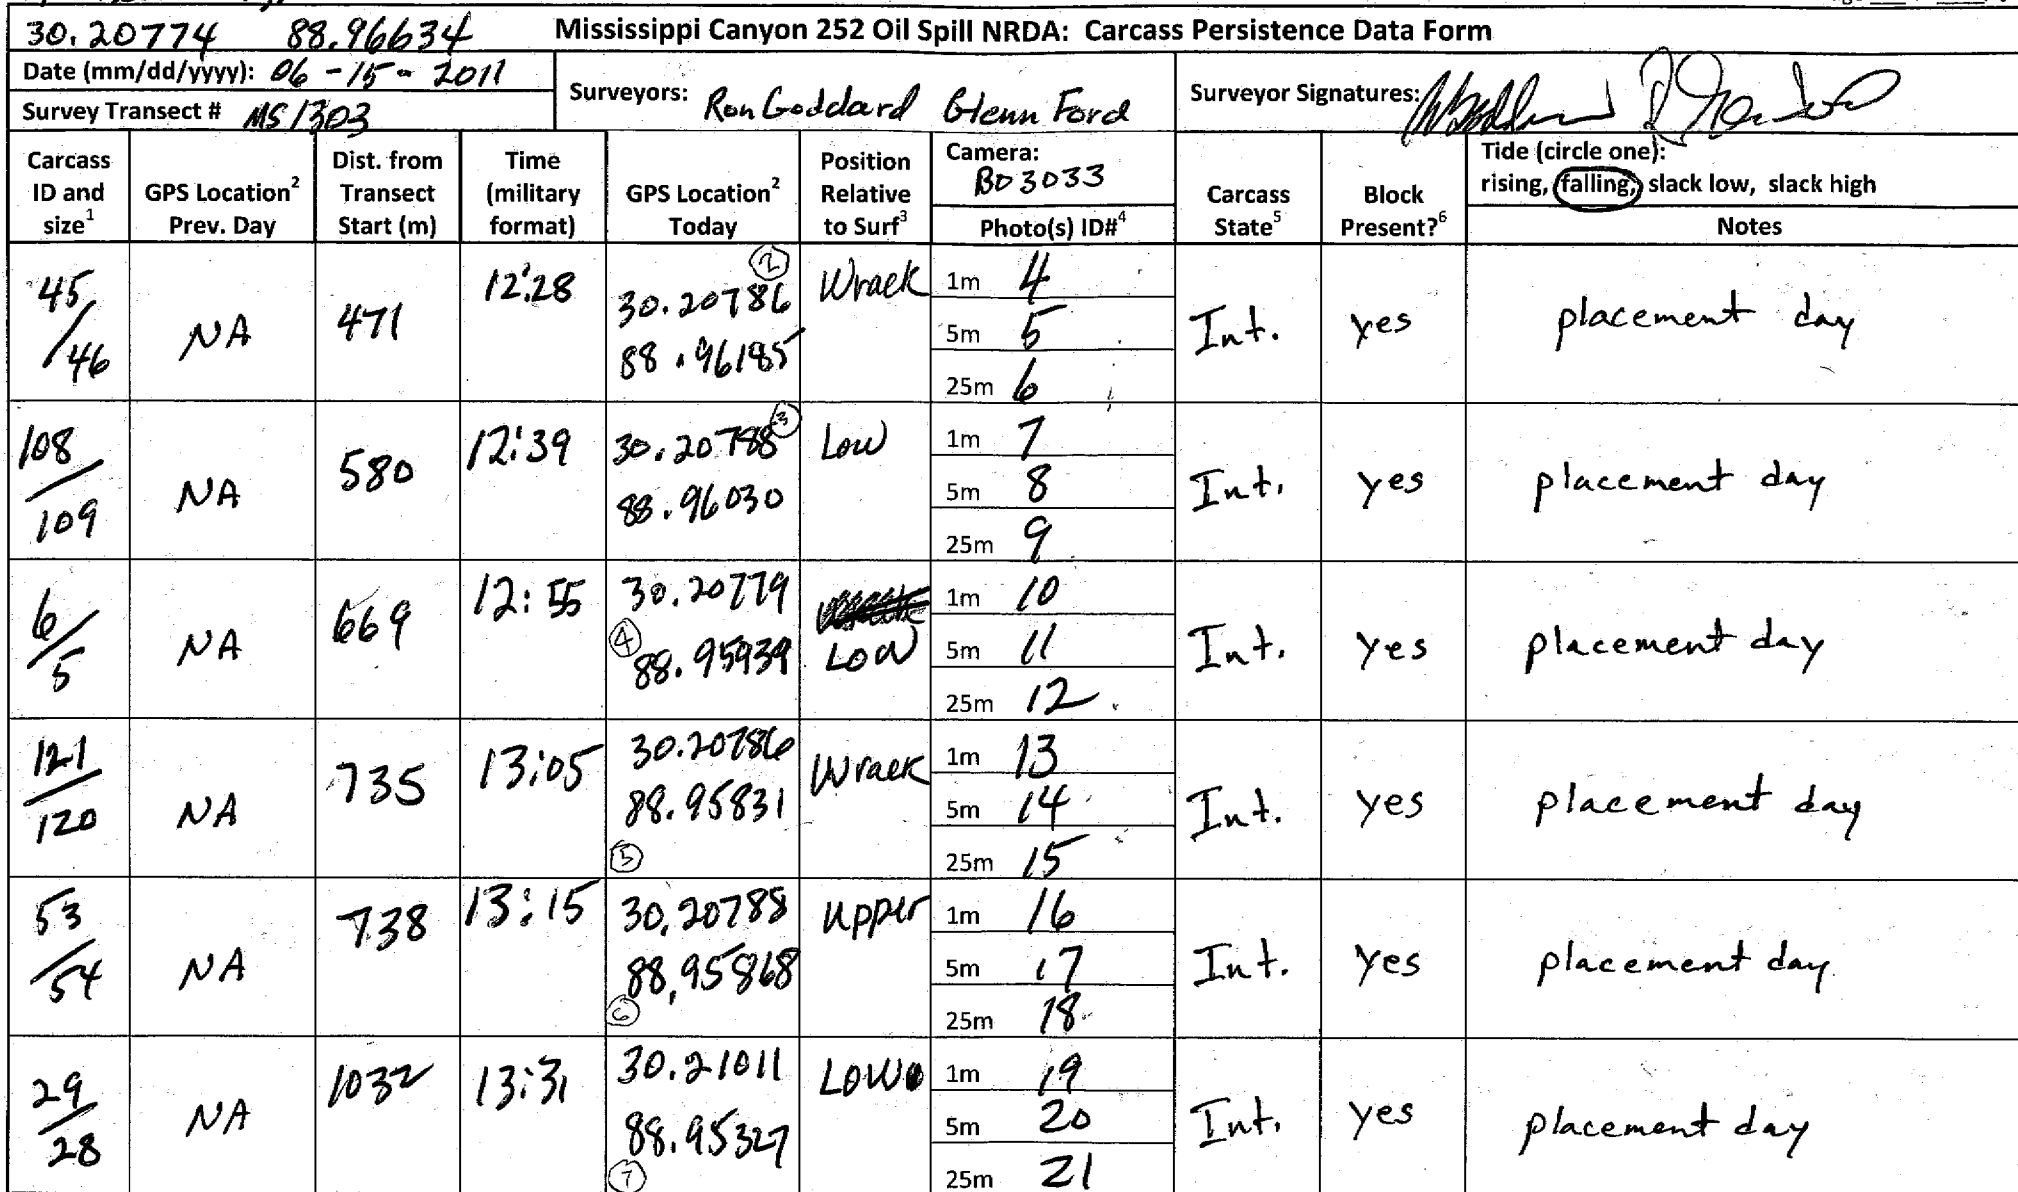 30.20774 88.96634 Mississippi Canyon 252 Oil Spill NRDA: Carcass Persistence Data Form
Date (mm/dd/yyyy): 06-15-2011
Survey Transect # MS1303
Surveyors: Ron Goddard Glenn Ford
Surveyor Signatures:
Carcass ID and size1
GPS Location2 Prev. Day
Dist. from Transect Start (m)
Time (military format)
GPS Location2 Today
Position Relative to Surf3
Camera: BO3033
Photo(s) ID#4
Carcass State5
Block Present?6
Tide (circle one):
rising, falling, slack low, slack high
Notes
45/46 NA 471 12:28 30.20786 88.96185 2 Wrack
1m 4
5m 5
25m 6
Int. yes placement day
108/109 NA 580 12:39 30.20788 88.96030 3 Low
1m 7
5m 8
25m 9
Int. yes placement day
6/5 NA 669 12:55 30.20779 88.95939 4 Low
1m 10
5m 11
25m 12
Int. yes placement day
121/120 NA 735 13:05 30.20786 88.95831 5 Wrack
1m 13
5m 14
25m 15
Int. yes placement day
53/54 NA 738 13:15 30.20788 88.95868 6 upper
1m 16
5m 17
25m 18
Int. yes placement day
29/28 NA 1032 13:31 30.21011 88.95327 7 Low
1m 19
5m 20
25m 21
Int. yes placement day